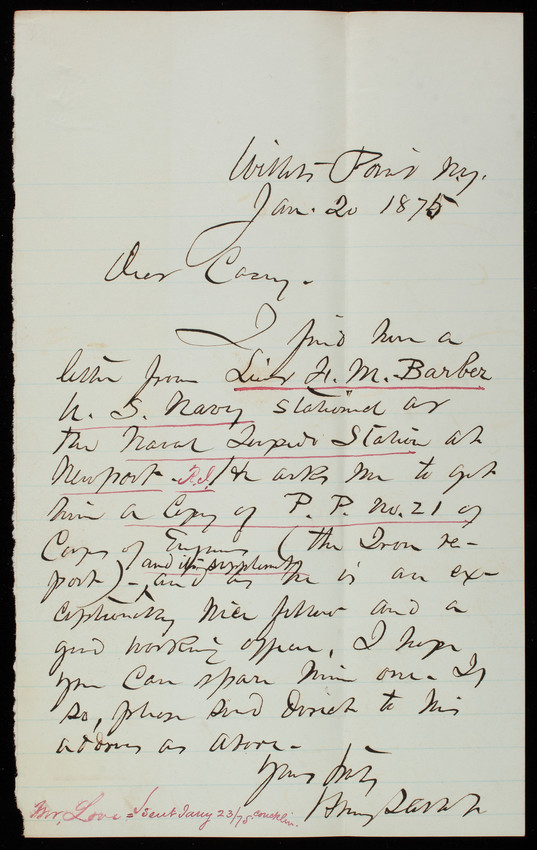 Willets Point N.Y.
Jan. 20 1875
Dear Casey.
I find here a
letter from Lieut F. M. Barber
U. S. Navy stationed at
the Naval Torpedo Station at
Newport. R.I. He asks me to get
him a Copy of P. P. No. 21 of
Corps of Engineers (the Iron re-
port) - and its supplements and as he is an ex-
ceptionally nice fellow and a
good working officer, I hope
you can spare him one. If
so, please send direct to his
address as above.
Yours truly
Henry L. Abbot
Mr. Love = sent Jany 23/75. Conklin.